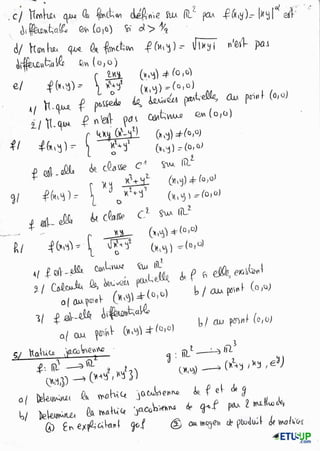 c/ Montrer que la fonction définie sur ℝ² par f(x,y) = |xy|^α est
différentiable en (0,0) si α > 1/2
d/ Montrer que la fonction f(x,y) = √|xy| n'est pas
différentiable en (0,0)
e/ f(x,y) = { 2xy / x²+y² (x,y) ≠ (0,0)
0 (x,y) = (0,0)
1/ M. que f possède des dérivées partielles, au point (0,0)
2/ M. que f n'est pas continue en (0,0)
f/ f(x,y) = { 4xy (x²-y²) / x²+y² (x,y) ≠ (0,0)
0 (x,y) = (0,0)
f est-elle de classe C¹ sur ℝ²
g/ f(x,y) = { xy x³+y² / x²+y² (x,y) ≠ (0,0)
0 (x,y) = (0,0)
f est-elle de classe C² sur ℝ²
h/ f(x,y) = { xy / √x²+y² (x,y) ≠ (0,0)
0 (x,y) = (0,0)
1/ f est-elle continue sur ℝ²
2/ Calculer les dérivées partielles de f si elles existent
a/ au point (x,y) ≠ (0,0) b/ au point (0,0)
3/ f est-elle différentiable
a/ au point (x,y) ≠ (0,0) b/ au point (0,0)
5/ Matrice jacobienne
f: ℝ³ → ℝ² g: ℝ² → ℝ³
(x,y,z) → (x+y², xy²z) (x,y) → (x²+y, xy, e^y)
a/ Déterminer la matrice jacobienne de f et de g
b/ Déterminer la matrice jacobienne de gof par 2 méthodes
① En explicitant gof ② au moyen de produit de matrices
ETUUP
.com